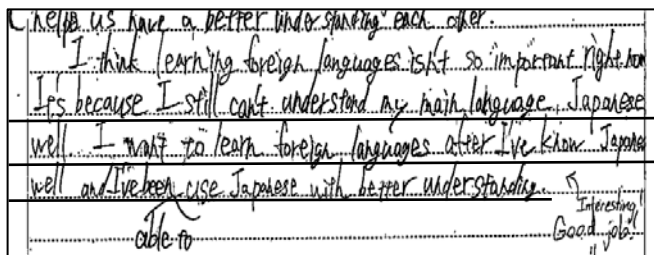 helps us have a better understanding each other.
I think learning foreign languages isn't so important right now
It's because I still can't understand my main language, Japanese
well. I want to learn foreign languages after I've know Japane
well and I've been use Japanese with better understanding.
able to
Interesting!
Good job!!